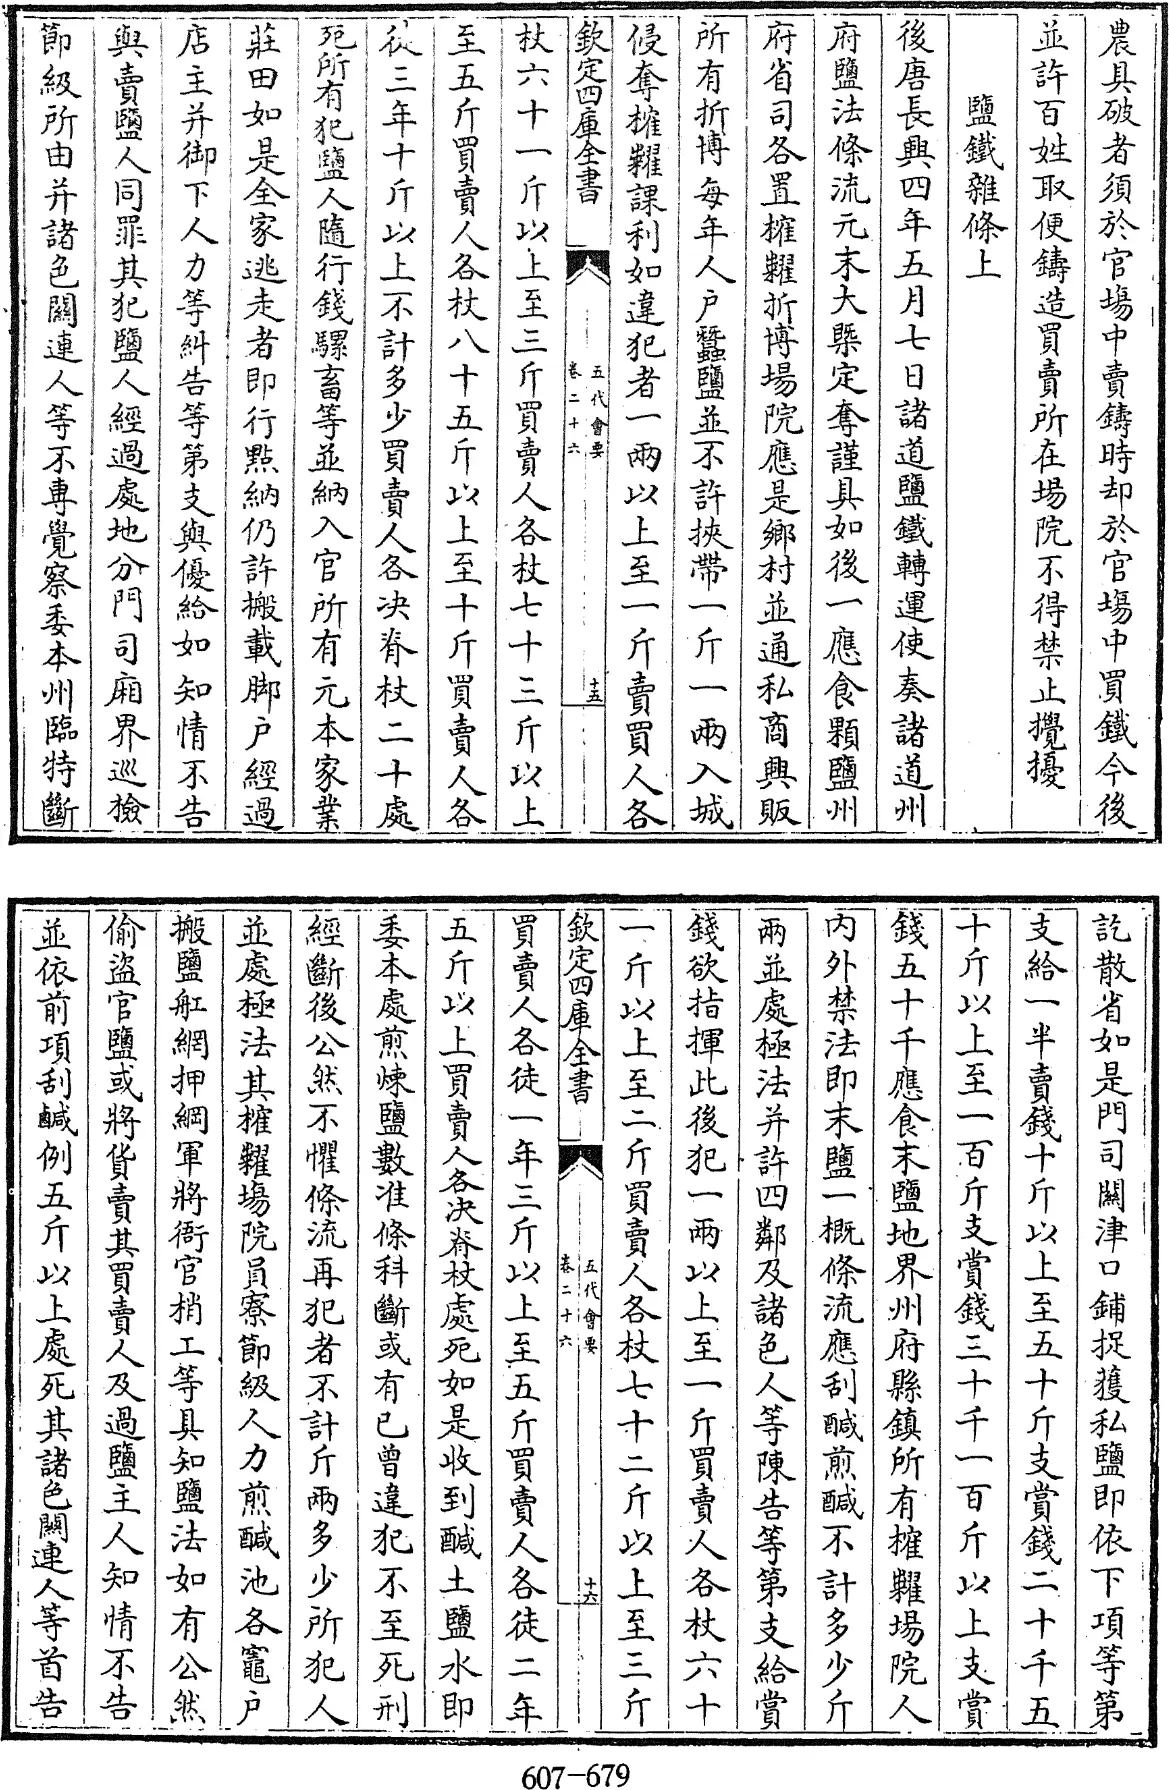 農具破者須於官塲中賣鑄時却於官塲中買鐵今後
並許百姓取便鑄造買賣所在塲院不得禁止攪擾
鹽鐵雜條上
後唐長興四年五月七日諸道鹽鐵轉運使奏諸道州
府鹽法條流元末大槩定奪謹具如後一應食顆鹽州
府省司各置榷糶折博塲院應是鄉村並通私商興販
所有折博每年人户蠶鹽並不許挾帶一斤一兩入城
侵奪榷糶課利如違犯者一兩以上至一斤賣買人各
欽定四庫全書
五代會要
卷二十六
十五
杖六十一斤以上至三斤買賣人各杖七十三斤以上
至五斤買賣人各杖八十五斤以上至十斤買賣人各
徒三年十斤以上不計多少買賣人各决脊杖二十處
死所有犯鹽人隨行錢騾畜等並納入官所有元本家業
莊田如是全家逃走者即行點納仍許搬載脚户經過
店主并御下人力等糾告等第支與優給如知情不告
與賣鹽人同罪其犯鹽人經過處地分門司廂界巡檢
節級所由并諸色關連人等不專覺察委本州臨特斷
訖散省如是門司關津口鋪捉獲私鹽即依下項等第
支給一半賣錢十斤以上至五十斤支賞錢二十千五
十斤以上至一百斤支賞錢三十千一百斤以上支賞
錢五十千應食末鹽地界州府縣鎮所有榷糶塲院人
内外禁法即末鹽一概條流應刮鹹煎鹹不計多少斤
兩並處極法并許四鄰及諸色人等陳告等第支給賞
錢欲指揮此後犯一兩以上至一斤買賣人各杖六十
一斤以上至二斤買賣人各杖七十二斤以上至三斤
欽定四庫全書
五代會要
卷二十六
十六
買賣人各徒一年三斤以上至五斤買賣人各徒二年
五斤以上買賣人各决脊杖處死如是收到鹹土鹽水即
委本處煎煉鹽數准條科斷或有已曾違犯不至死刑
經斷後公然不懼條流再犯者不計斤兩多少所犯人
並處極法其榷糶塲院員寮節級人力煎鹹池各竈户
搬鹽舡網押綱軍將衙官梢工等具知鹽法如有公然
偷盜官鹽或將貨賣其買賣人及過鹽主人知情不告
並依前項刮鹹例五斤以上處死其諸色關連人等首告
607-679